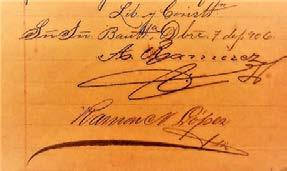 Lib. y Constn.
Sn Jn Bauta, Dbre. 7 de 906.
A. Ramirez
Ramon N. López